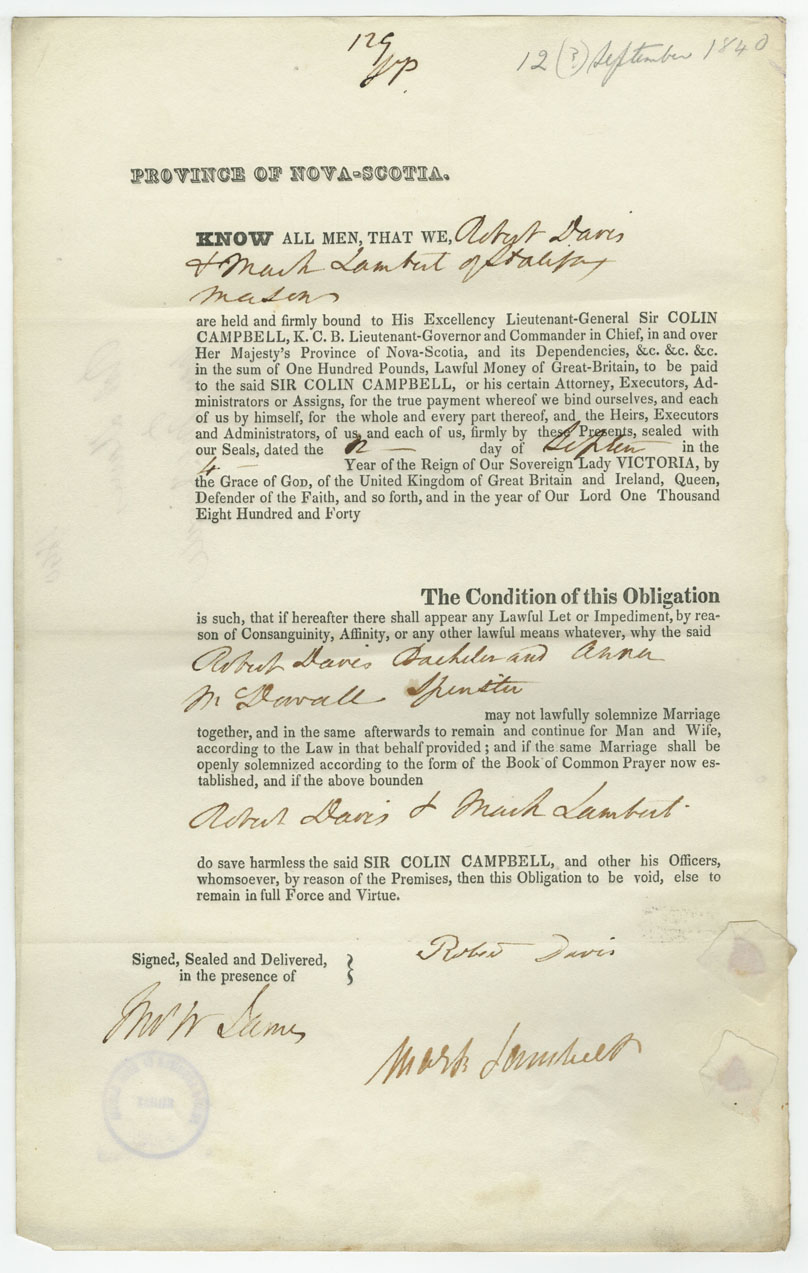 129
12 (?) September 1840
PROVINCE OF NOVA-SCOTIA.
KNOW ALL MEN, THAT WE, Robert Davis
& Mark Lambert of Halifax
Masons
are held and firmly bound to His Excellency Lieutenant-General Sir COLIN
CAMPBELL, K. C. B. Lieutenant-Governor and Commander in Chief, in and over
Her Majesty's Province of Nova-Scotia, and its Dependencies, &c. &c. &c.
in the sum of One Hundred Pounds, Lawful Money of Great-Britain, to be paid
to the said SIR COLIN CAMPBELL, or his certain Attorney, Executors, Ad-
ministrators or Assigns, for the true payment whereof we bind ourselves, and each
of us by himself, for the whole and every part thereof, and the Heirs, Executors
and Administrators, of us, and each of us, firmly by these Presents, sealed with
our Seals, dated the 12 — day of Septem in the
4 — Year of the Reign of Our Sovereign Lady VICTORIA, by
the Grace of GOD, of the United Kingdom of Great Britain and Ireland, Queen,
Defender of the Faith, and so forth, and in the year of Our Lord One Thousand
Eight Hundred and Forty
The Condition of this Obligation
is such, that if hereafter there shall appear any Lawful Let or Impediment, by rea-
son of Consanguinity, Affinity, or any other lawful means whatever, why the said
Robert Davis Bachelor and Anna
McDowall Spinster
may not lawfully solemnize Marriage
together, and in the same afterwards to remain and continue for Man and Wife,
according to the Law in that behalf provided; and if the same Marriage shall be
openly solemnized according to the form of the Book of Common Prayer now es-
tablished, and if the above bounden
Robert Davis & Mark Lambert
do save harmless the said SIR COLIN CAMPBELL, and other his Officers,
whomsoever, by reason of the Premises, then this Obligation to be void, else to
remain in full Force and Virtue.
Signed, Sealed and Delivered,
in the presence of
Robert Davis
Thos W James
Mark Lambert